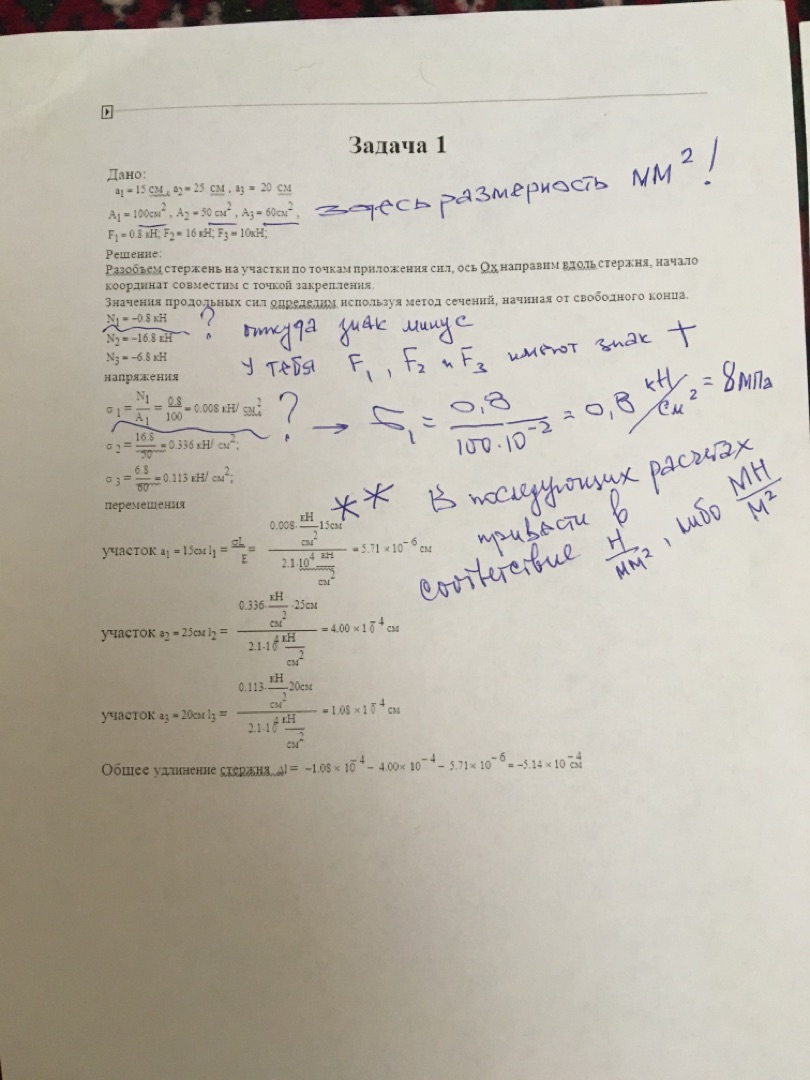 Задача 1
Дано:
a₁ = 15 см , a₂ = 25 см , a₃ = 20 см
A₁ = 100см² , A₂ = 50 см² , A₃ = 60см² ,
здесь размерность мм² !
F₁ = 0.8 кН; F₂ = 16 кН; F₃ = 10кН;
Решение:
Разобьем стержень на участки по точкам приложения сил, ось Ох направим вдоль стержня, начало
координат совместим с точкой закрепления.
Значения продольных сил определим используя метод сечений, начиная от свободного конца.
N₁ = −0.8 кН
? откуда знак минус
N₂ = −16.8 кН
у тебя F₁ , F₂ и F₃ имеют знак +
N₃ = −6.8 кН
напряжения
σ₁ = N₁/A₁ = 0.8/100 = 0.008 кН/ см²
? → σ₁ = 0,8/100·10⁻² = 0,8 кН/см² = 8 мПа
σ₂ = 16.8/50 = 0.336 кН/ см²;
σ₃ = 6.8/60 = 0.113 кН/ см²;
** В последующих расчетах
привести в
соответствие Н/мм² , либо МН/м²
перемещения
участок a₁ = 15см l₁ = σL/E = 0.008·кН/см²·15см / 2.1·10⁴ кН/см² = 5.71 × 10⁻⁶ см
участок a₂ = 25см l₂ = 0.336·кН/см²·25см / 2.1·10⁴ кН/см² = 4.00 × 10⁻⁴ см
участок a₃ = 20см l₃ = 0.113·кН/см²·20см / 2.1·10⁴ кН/см² = 1.08 × 10⁻⁴ см
Общее удлинение стержня Δl = −1.08 × 10⁻⁴ − 4.00× 10⁻⁴ − 5.71× 10⁻⁶ = −5.14 × 10⁻⁴ см